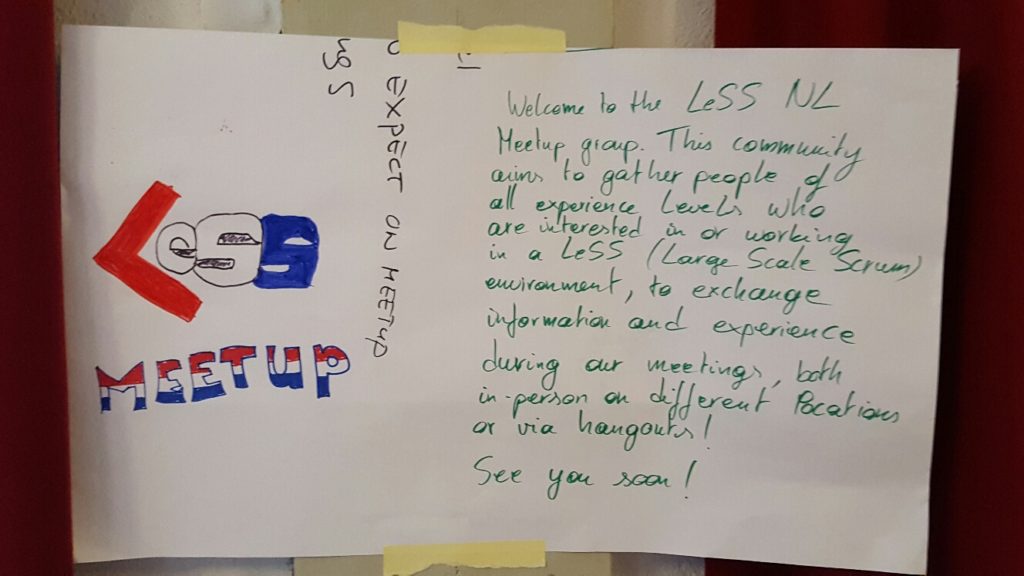 LeSS
MEETUP
EXPECT ON MEETUP
ngs
Welcome to the LeSS NL
Meetup group. This community
aims to gather people of
all experience levels who
are interested in or working
in a LeSS (Large Scale Scrum)
environment, to exchange
information and experience
during our meetings, both
in-person on different locations
or via hangouts!
See you soon!